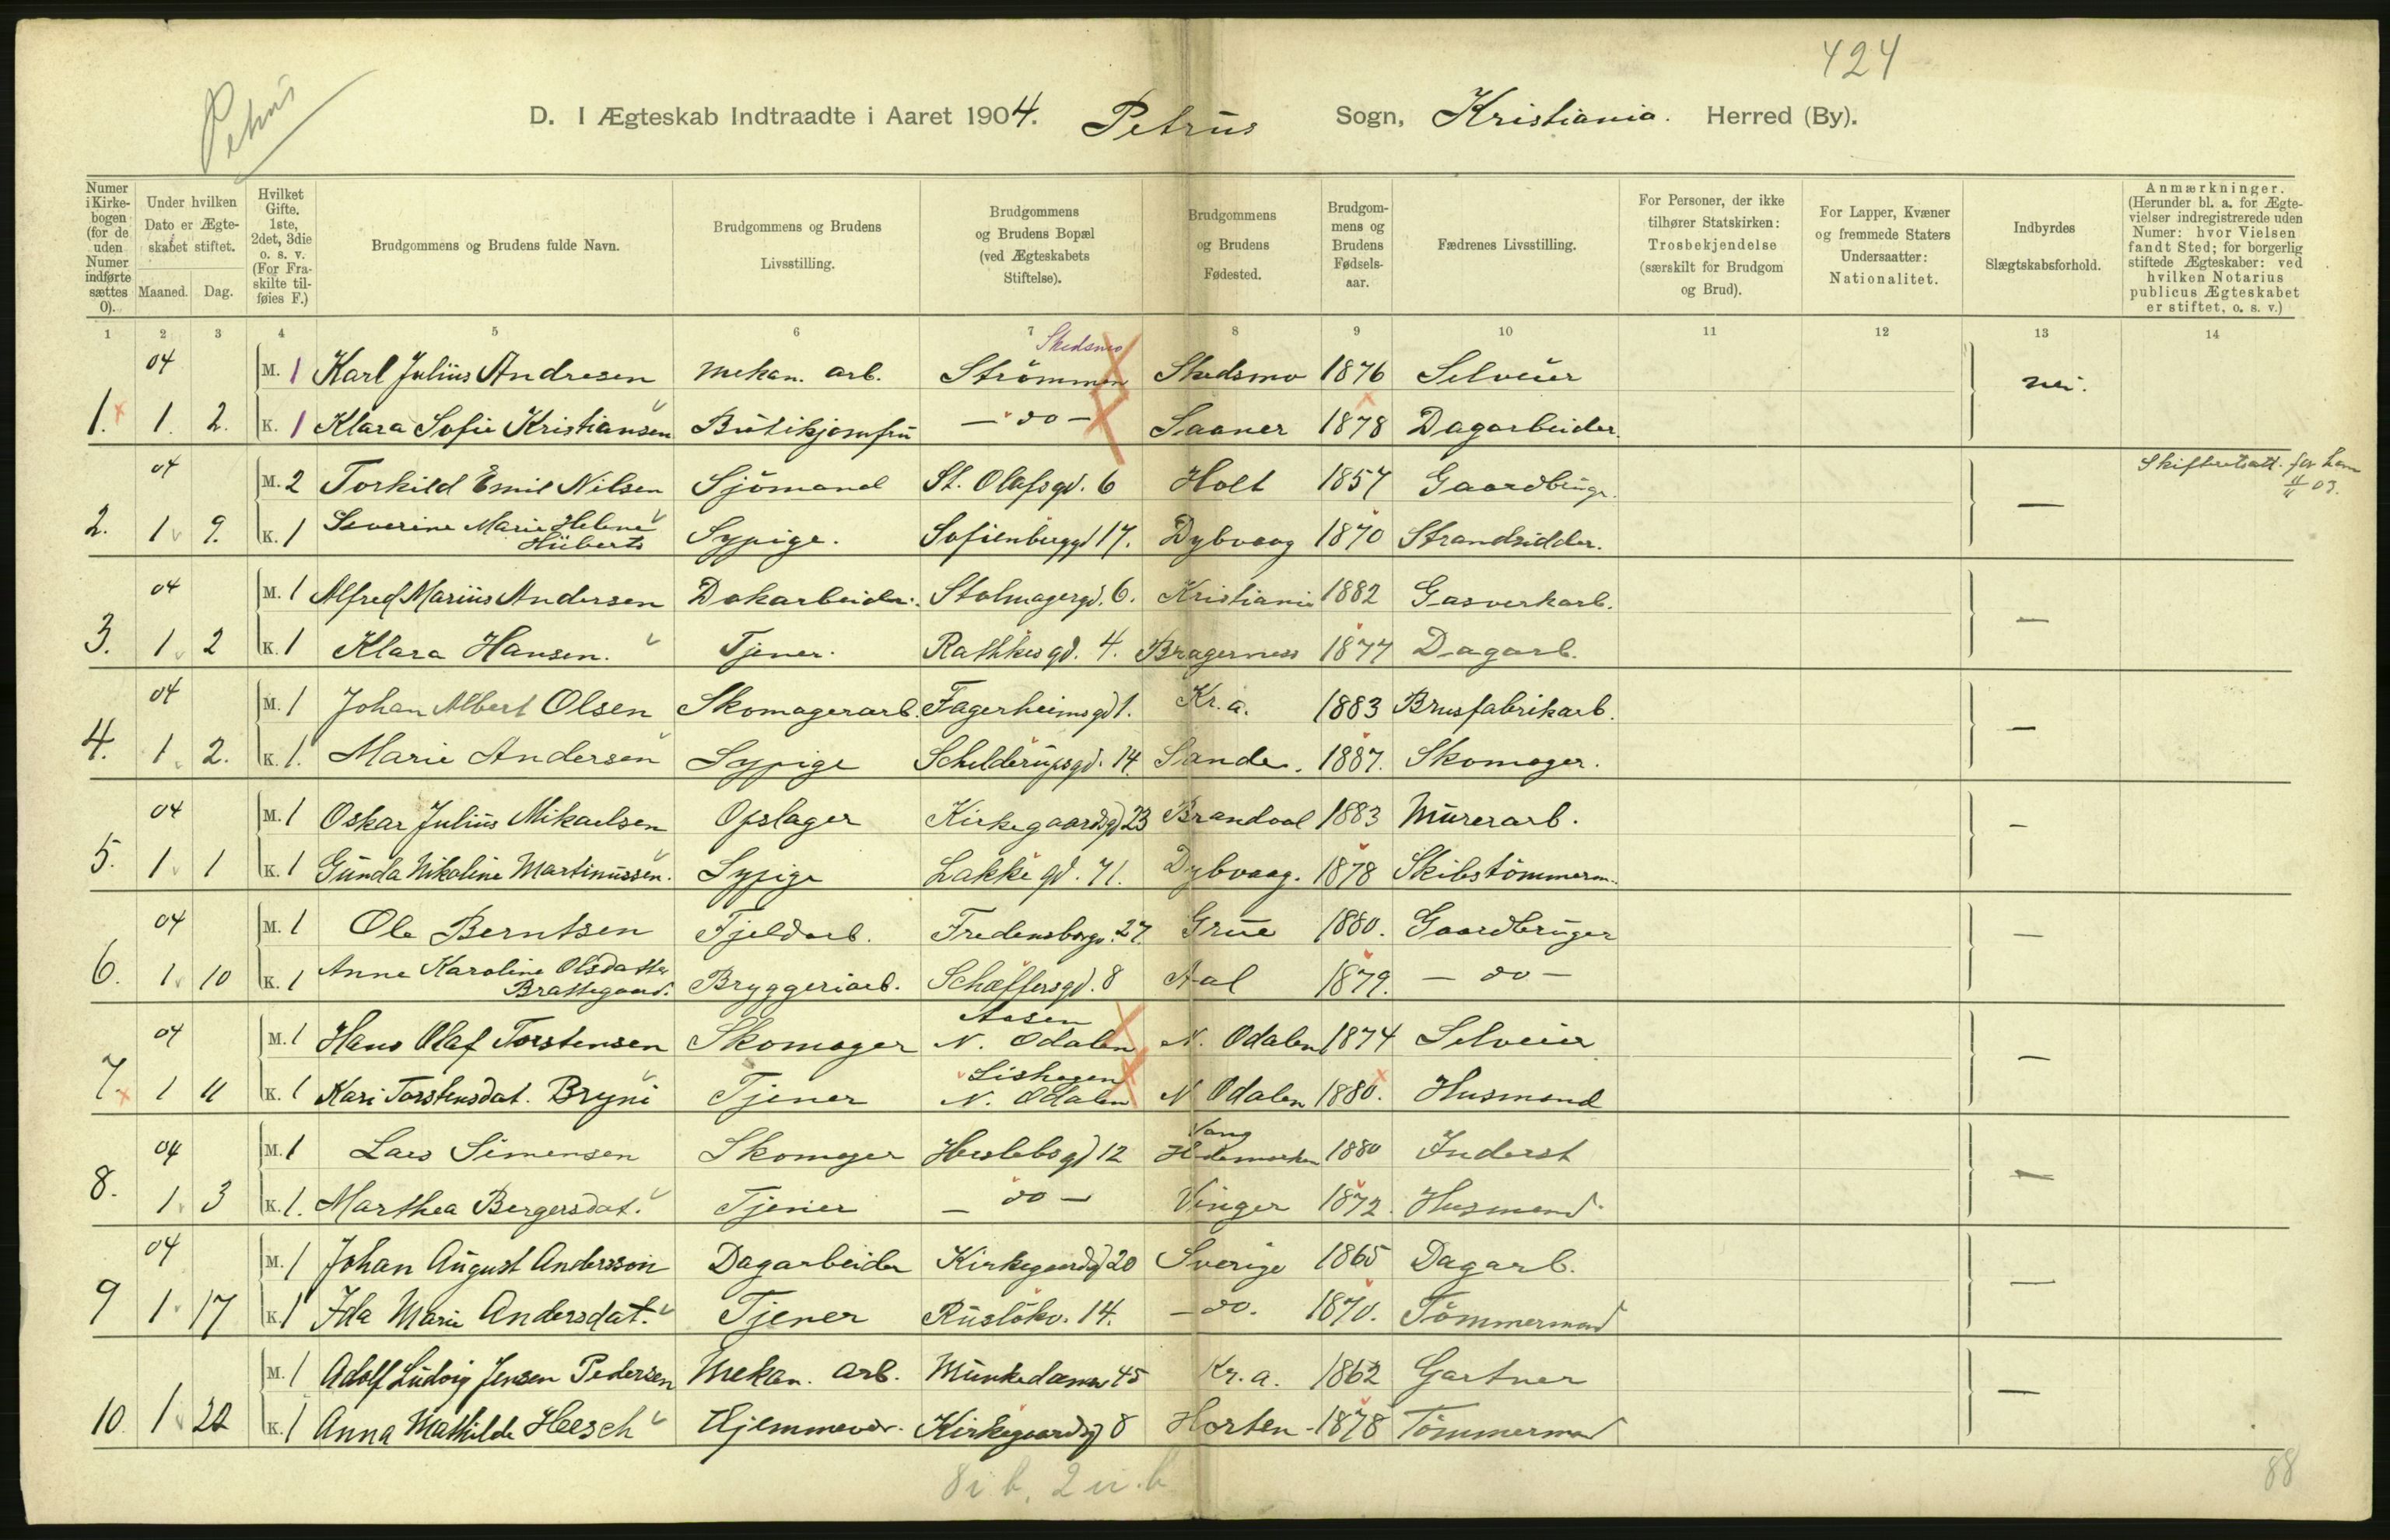 424
Petrus
D. I Ægteskab Indtraadte i Aaret 1904. Petrus Sogn, Kristiania. Herred (By).
Numer i Kirkebogen (for de uden Numer indførte sættes 0).
Under hvilken Dato er Ægteskabet stiftet.
Maaned. Dag.
Hvilket Gifte. 1ste, 2det, 3die o. s. v. (For Fraskilte tilføies F.)
Brudgommens og Brudens fulde Navn.
Brudgommens og Brudens Livsstilling.
Brudgommens og Brudens Bopæl (ved Ægteskabets Stiftelse).
Brudgommens og Brudens Fødested.
Brudgommens og Brudens Fødselsaar.
Fædrenes Livsstilling.
For Personer, der ikke tilhører Statskirken: Trosbekjendelse (særskilt for Brudgom og Brud).
For Lapper, Kvæner og fremmede Staters Undersaatter: Nationalitet.
Indbyrdes Slægtskabsforhold.
Anmærkninger. (Herunder bl. a. for Ægtevielser indregistrerede uden Numer: hvor Vielsen fandt Sted; for borgerlig stiftede Ægteskaber: ved hvilken Notarius publicus Ægteskabet er stiftet, o. s. v.)
1 2 3 4 5 6 7 8 9 10 11 12 13 14
Skedsmo
04 M. 1 Karl Julius Andresen mekan. arb. Strömmen Skedsmo 1876 Selveier nei.
1. 1. 2. K. 1 Klara Sofie Kristiansen Butikjomfru — do — Saaner 1878 Dagarbeider.
04 M. 2 Torkild Emil Nilsen Sjömand St. Olafsgd. 6 Holt 1857 Gaardbrugr. —
03.
2. 1 9. K. 1 Severine Marie Helene Huberts Sypige. Sofienberggd 17. Dybvaag 1870 Strandsidder.
04 M. 1 Alfred Marius Andersen Dokarbeider. Stolmagergd. 6. Kristiania 1882 Gasverkarb. —
3. 1 2 K. 1 Klara Hansen. Tjener. Rathkesgd. 4. Bragerness 1877 Dagarb.
04 M. 1 Johan Albert Olsen Skomagerarb. Fagerheimsgd 1. Kr.a. 1883 Brusfabrikarb. —
4. 1 2. K. 1. Marie Andersen Sypige Schelderupsgd. 14. Sande. 1887. Skomager.
04 M. 1 Oskar Julius Mikaelsen Opslager Kirkegaardsgd 23 Brandval 1883 Murerarb. —
5. 1 1 K. 1 Gunda Nikoline Martinussen. Sypige Lakkegd. 71. Dybvaag. 1878 Skibstömmerm.
04 M. 1 Ole Berntsen Fjeldarb. Fredensborgv. 27. Grue 1880. Gaardbruger —
6. 1 10 K. 1 Anne Karoline Olsdatter Brattegaard. Bryggeriarb. Schæffersgd. 8 Aal 1879. — do —
Aasen
04 M. 1 Hans Olaf Torstensen Skomager N. Odalen N. Odalen 1874 Selveier —
Lishagen
7. 1 11 K. 1 Kari Torstensdat. Bryni Tjener N. Odalen N Odalen 1880. Husmand
Vang
04 M. 1 Lars Simensen Skomager Herslebsgd 12 Hedemarken 1880 Inderst —
8. 1 3 K. 1. Marthea Bergersdat. Tjener — do — Vinger 1872. Husmand
04 M. 1 Johan August Andersson Dagarbeider Kirkegaardsgd 20 Sverige 1865 Dagarb. —
9 1 17 K. 1 Ida Marie Andersdat. Tjener Ruslökv. 14. — do. 1870. Tömmermand
M. 1 Adolf Ludvig Jensen Pedersen Mekan. arb. Munkedamsv 45 Kr.a. 1862 Gartner —
10 1 22 K. 1 Anna Mathilde Heesch Hjemmevær. Kirkegaardsgd 8 Horten 1878 Tömmermand
8 i b, 2 u.b
88